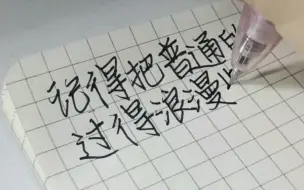 记得把普通的
过得浪漫些